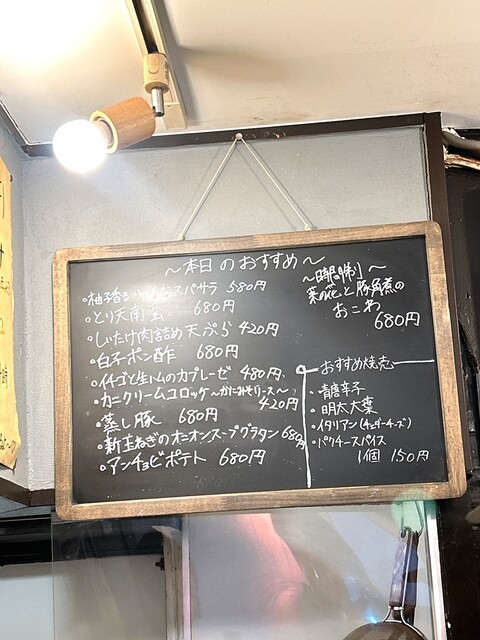 ～本日のおすすめ～
・柚子香る スパサラ 580円
・とり天南蛮 680円
・しいたけ肉詰め天ぷら 420円
・白子ポン酢 680円
・イチゴと生ハムのカプレーゼ 480円
・カニクリームコロッケ～かにみそソース～
420円
・蒸し豚 680円
・新玉ねぎのオニオンスープグラタン 680円
・アンチョビポテト 680円
～時間限定～
菜の花と豚角煮の
おこわ
680円
おすすめ焼売
・青唐辛子
・明太大葉
・イタリアン(チェダーチーズ)
・パクチースパイス
1個 150円